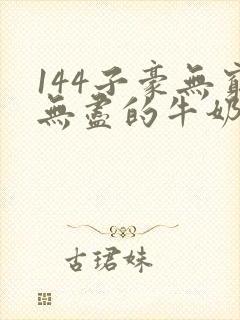 144子豪無窮
無盡的牛奶
古珺妹